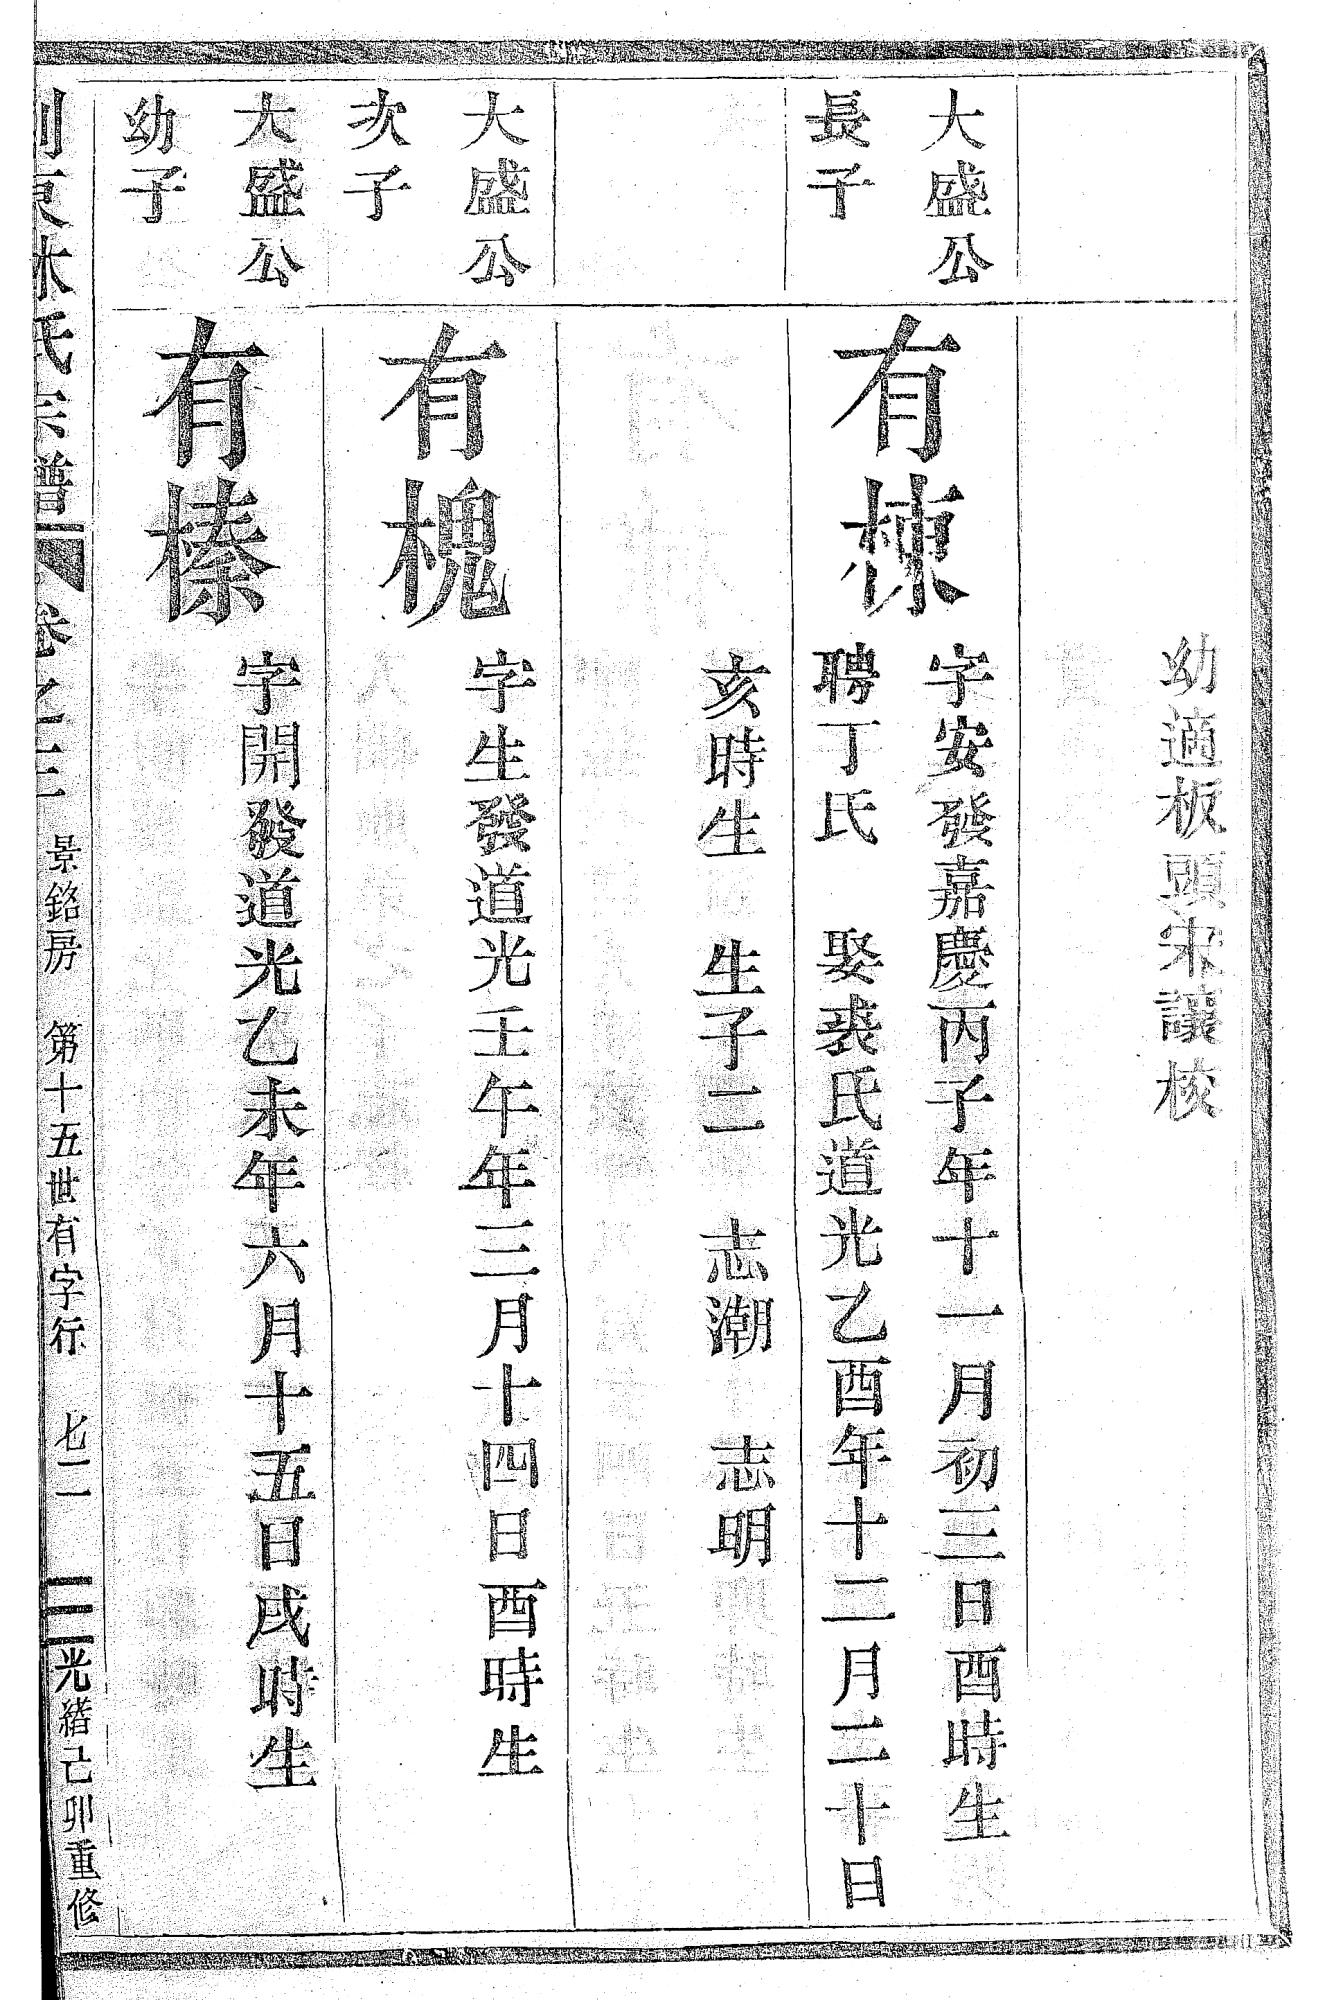 幼適板頭宋讓校
大盛公
長子
有棟
字安發嘉慶丙子年十一月初三日酉時生
聘丁氏 娶裘氏道光乙酉年十二月二十日
亥時生 生子二 志潮 志明
大盛公
次子
有槐
字生發道光壬午年三月十四日酉時生
大盛公
幼子
有榛
字開發道光乙未年六月十五日戌時生
東林氏宗譜 卷之三 景銘房 第十五世有字行 七二 光緒己卯重修